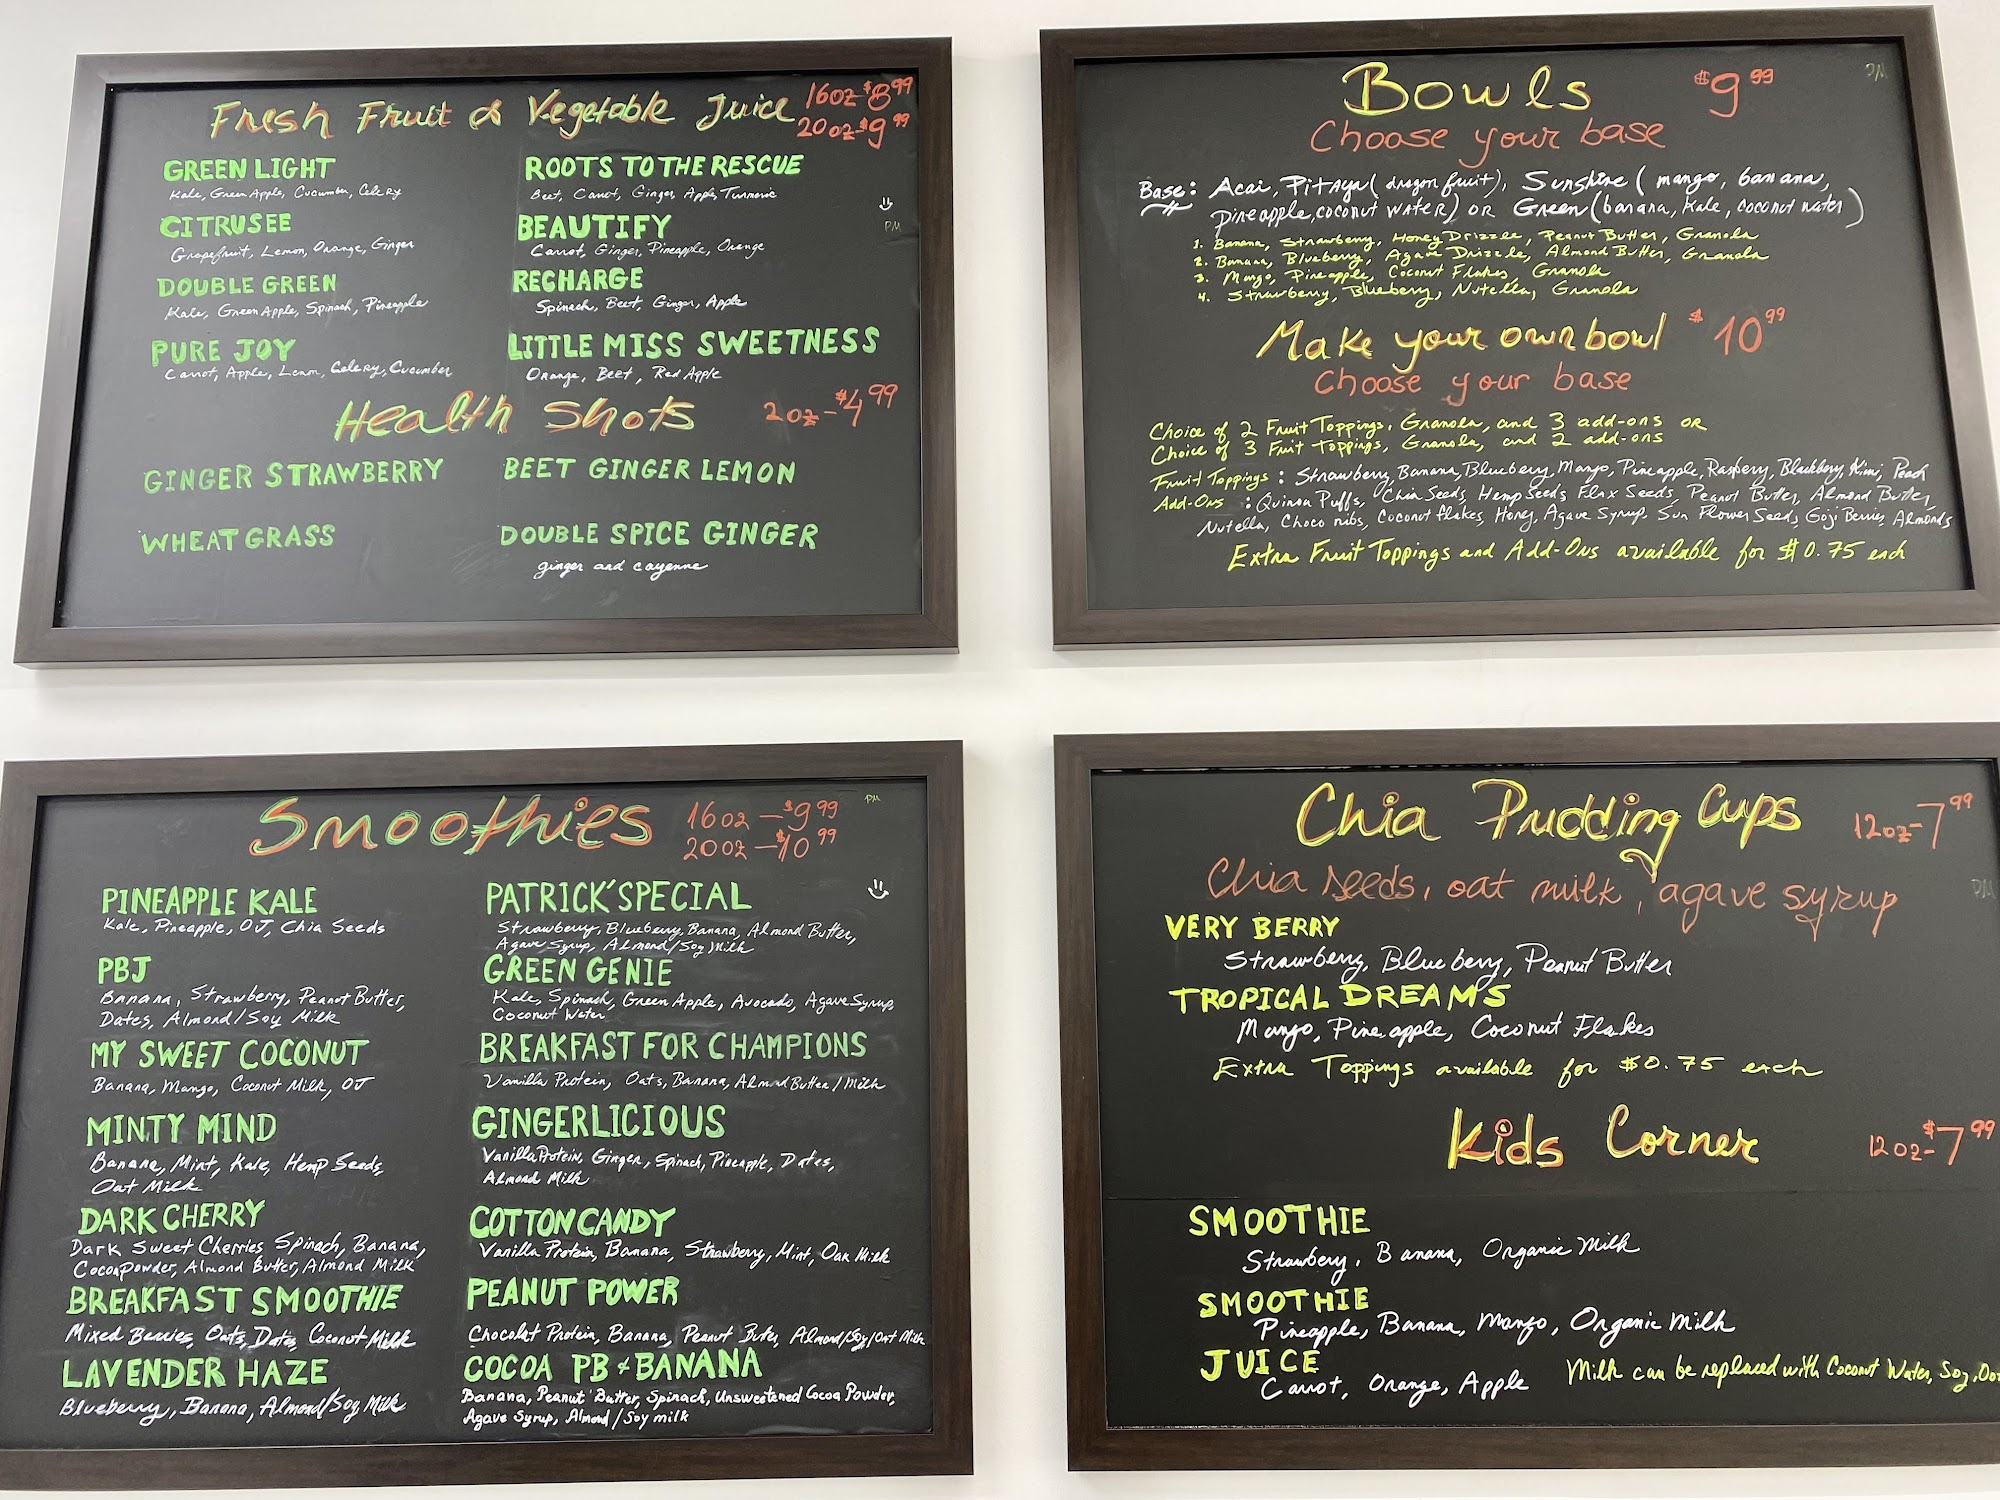 Fresh Fruit & Vegetable Juice
16oz-$8.99
20oz-$9.99
GREEN LIGHT
Kale, Green Apple, Cucumber, Celery
CITRUSEE
Grapefruit, Lemon, Orange, Ginger
DOUBLE GREEN
Kale, Green Apple, Spinach, Pineapple
PURE JOY
Carrot, Apple, Lemon, Celery, Cucumber
ROOTS TO THE RESCUE
Beet, Carrot, Ginger, Apple, Turmeric
BEAUTIFY
Carrot, Ginger, Pineapple, Orange
RECHARGE
Spinach, Beet, Ginger, Apple
LITTLE MISS SWEETNESS
Orange, Beet, Red Apple
PM
Health Shots
2oz-$4.99
GINGER STRAWBERRY
BEET GINGER LEMON
WHEAT GRASS
DOUBLE SPICE GINGER
ginger and cayenne
Bowls
$9.99
PM
Choose your base
Base: Acai, Pitaya (dragon fruit), Sunshine (mango, banana,
pineapple, coconut water) or Green (banana, kale, coconut water)
1. Banana, Strawberry, Honey Drizzle, Peanut Butter, Granola
2. Banana, Blueberry, Agave Drizzle, Almond Butter, Granola
3. Mango, Pineapple, Coconut Flakes, Granola
4. Strawberry, Blueberry, Nutella, Granola
Make your own bowl
$10.99
Choose your base
Choice of 2 Fruit Toppings, Granola, and 3 add-ons or
Choice of 3 Fruit Toppings, Granola, and 2 add-ons
Fruit Toppings: Strawberry, Banana, Blueberry, Mango, Pineapple, Raspbery, Blackbery, Kiwi, Peach
Add-Ons: Quinoa Puffs, Chia Seeds, Hemp Seeds Flax Seeds, Peanut Butter, Almond Butter,
Nutella, Choco nibs, Coconut flakes, Honey, Agave Syrup, Sun Flower Seed, Goji Berries, Almonds
Extra Fruit Toppings and Add-Ons available for $0.75 each
Smoothies
16oz-$9.99
20oz-$10.99
PM
PINEAPPLE KALE
Kale, Pineapple, OJ, Chia Seeds
PBJ
Banana, Strawberry, Peanut Butter,
Dates, Almond/Soy Milk
MY SWEET COCONUT
Banana, Mango, Coconut Milk, OJ
MINTY MIND
Banana, Mint, Kale, Hemp Seeds,
Oat Milk
DARK CHERRY
Dark Sweet Cherries, Spinach, Banana,
Cocoa Powder, Almond Butter, Almond Milk
BREAKFAST SMOOTHIE
Mixed Berries, Oats, Dates, Coconut Milk
LAVENDER HAZE
Blueberry, Banana, Almond/Soy Milk
PATRICK'SPECIAL
Strawberry, Blueberry, Banana, Almond Butter,
Agave Syrup, Almond/Soy Milk
GREEN GENIE
Kale, Spinach, Green Apple, Avocado, Agave Syrup,
Coconut Water
BREAKFAST FOR CHAMPIONS
Vanilla Protein, Oats, Banana, Almond Butter/Milk
GINGERLICIOUS
Vanilla Protein, Ginger, Spinach, Pineapple, Dates,
Almond Milk
COTTON CANDY
Vanilla Protein, Banana, Strawberry, Mint, Oak Milk
PEANUT POWER
Chocolat Protein, Banana, Peanut Buter, Almond/Soy/Oat Milk
COCOA PB + BANANA
Banana, Peanut Butter, Spinach, Unsweetened Cocoa Powder,
Agave Syrup, Almond/Soy milk
Chia Pudding Cups
12oz-7.99
Chia seeds, oat milk, agave syrup
PM
VERY BERRY
Strawberry, Blueberry, Peanut Butter
TROPICAL DREAMS
Mango, Pineapple, Coconut Flakes
Extra Toppings available for $0.75 each
Kids Corner
12oz-$7.99
SMOOTHIE
Strawberry, Banana, Organic Milk
SMOOTHIE
Pineapple, Banana, Mango, Organic Milk
JUICE
Carrot, Orange, Apple
Milk can be replaced with Coconut Water, Soy,